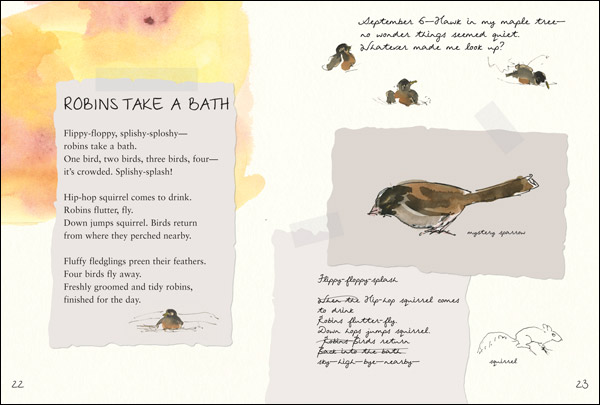 ROBINS TAKE A BATH
Flippy-floppy, splishy-sploshy—
robins take a bath.
One bird, two birds, three birds, four—
it's crowded. Splishy-splash!
Hip-hop squirrel comes to drink.
Robins flutter, fly.
Down jumps squirrel. Birds return
from where they perched nearby.
Fluffy fledglings preen their feathers.
Four birds fly away.
Freshly groomed and tidy robins,
finished for the day.
22
September 6—Hawk in my maple tree—
no wonder things seemed quiet.
Whatever made me look up?
mystery sparrow
Flippy-floppy-splash
When the Hip-hop squirrel comes
to drink
Robins flutter-fly.
Down hops jumps squirrel.
Robins Birds return
Back into the bath
sky-high-bye-nearby
squirrel
23